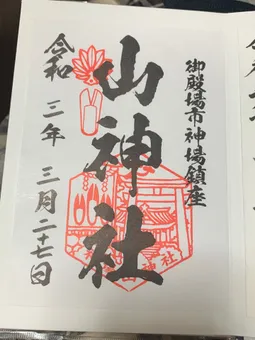 御殿場市神場鎮座
山神社
令和三年三月二十七日